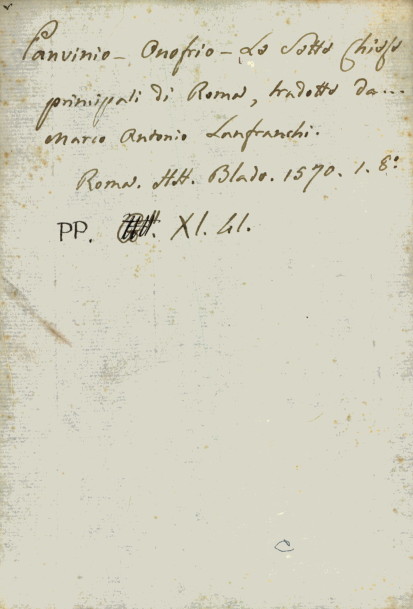 Panvinio - Onofrio - Le Sette Chiese
principali di Roma, tradotte da...
Marco Antonio Lanfranchi.
Roma. HH. Blado. 1570. 1. 8º
PP. XI. 41.